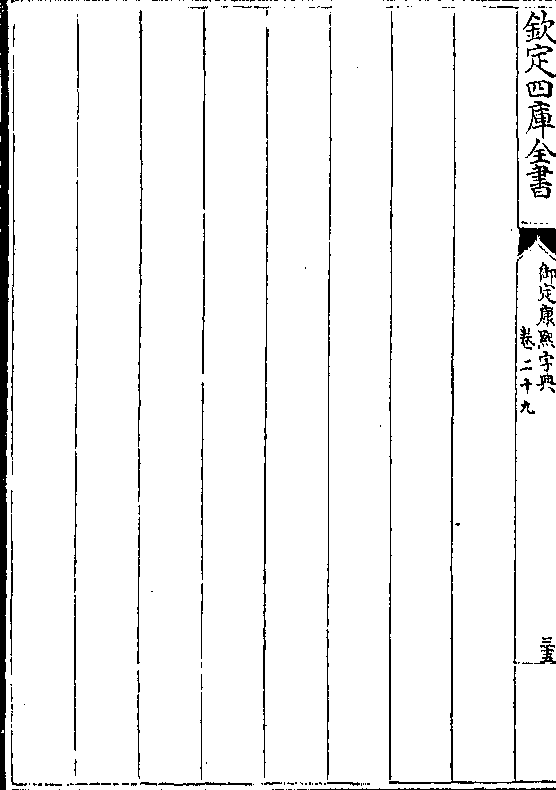 欽定四庫全書
御定康熙字典
卷二十九
三五